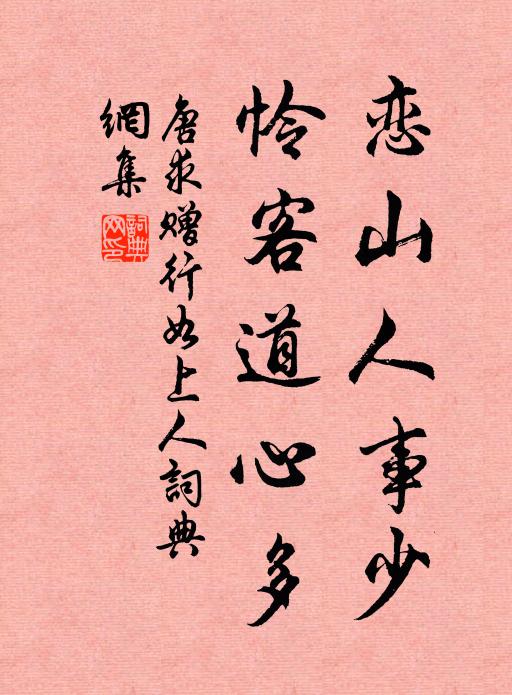 恋山人事少
怜客道心多
唐求赠行如上人詞典
網集
詞典
网印